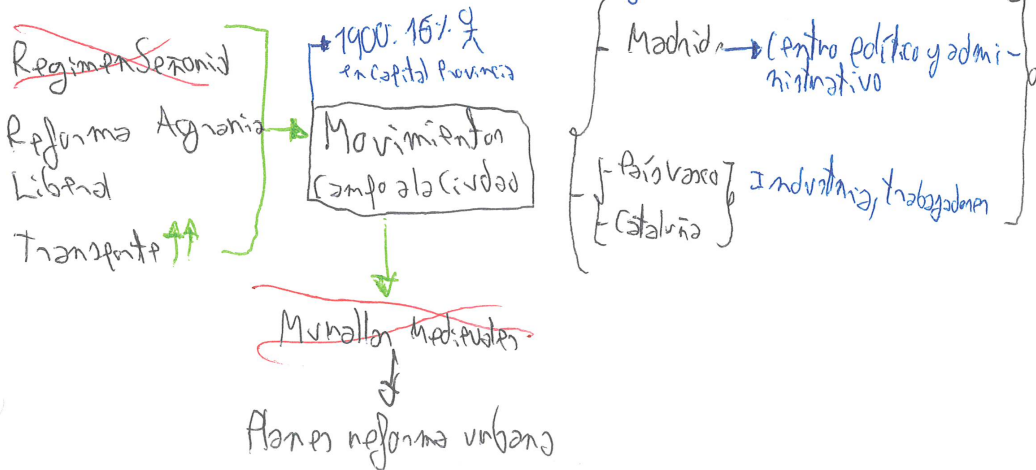 Regimen Señorial
Reforma Agraria
Liberal
Transporte
1900. 16%
en Capital Provincia
Movimientos
Campo a la Ciudad
Murallas Medievales
Planes reforma urbana
- Madrid
Centro político y admi-
nistrativo
- País vasco
- Cataluña
Industria, trabagadores